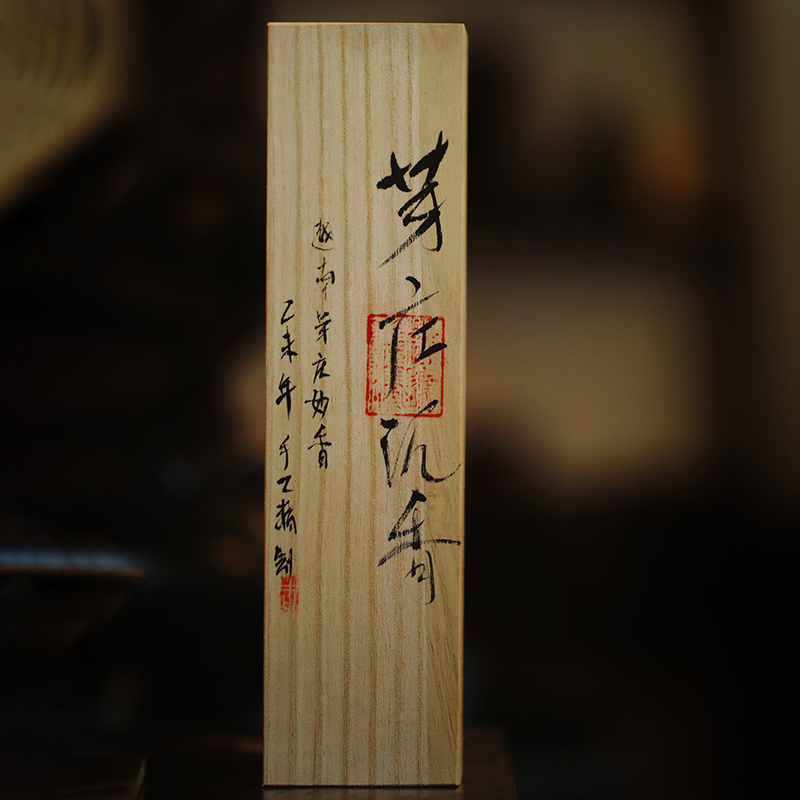 芽庄沉香
越南芽庄妙香
乙未年手工精制